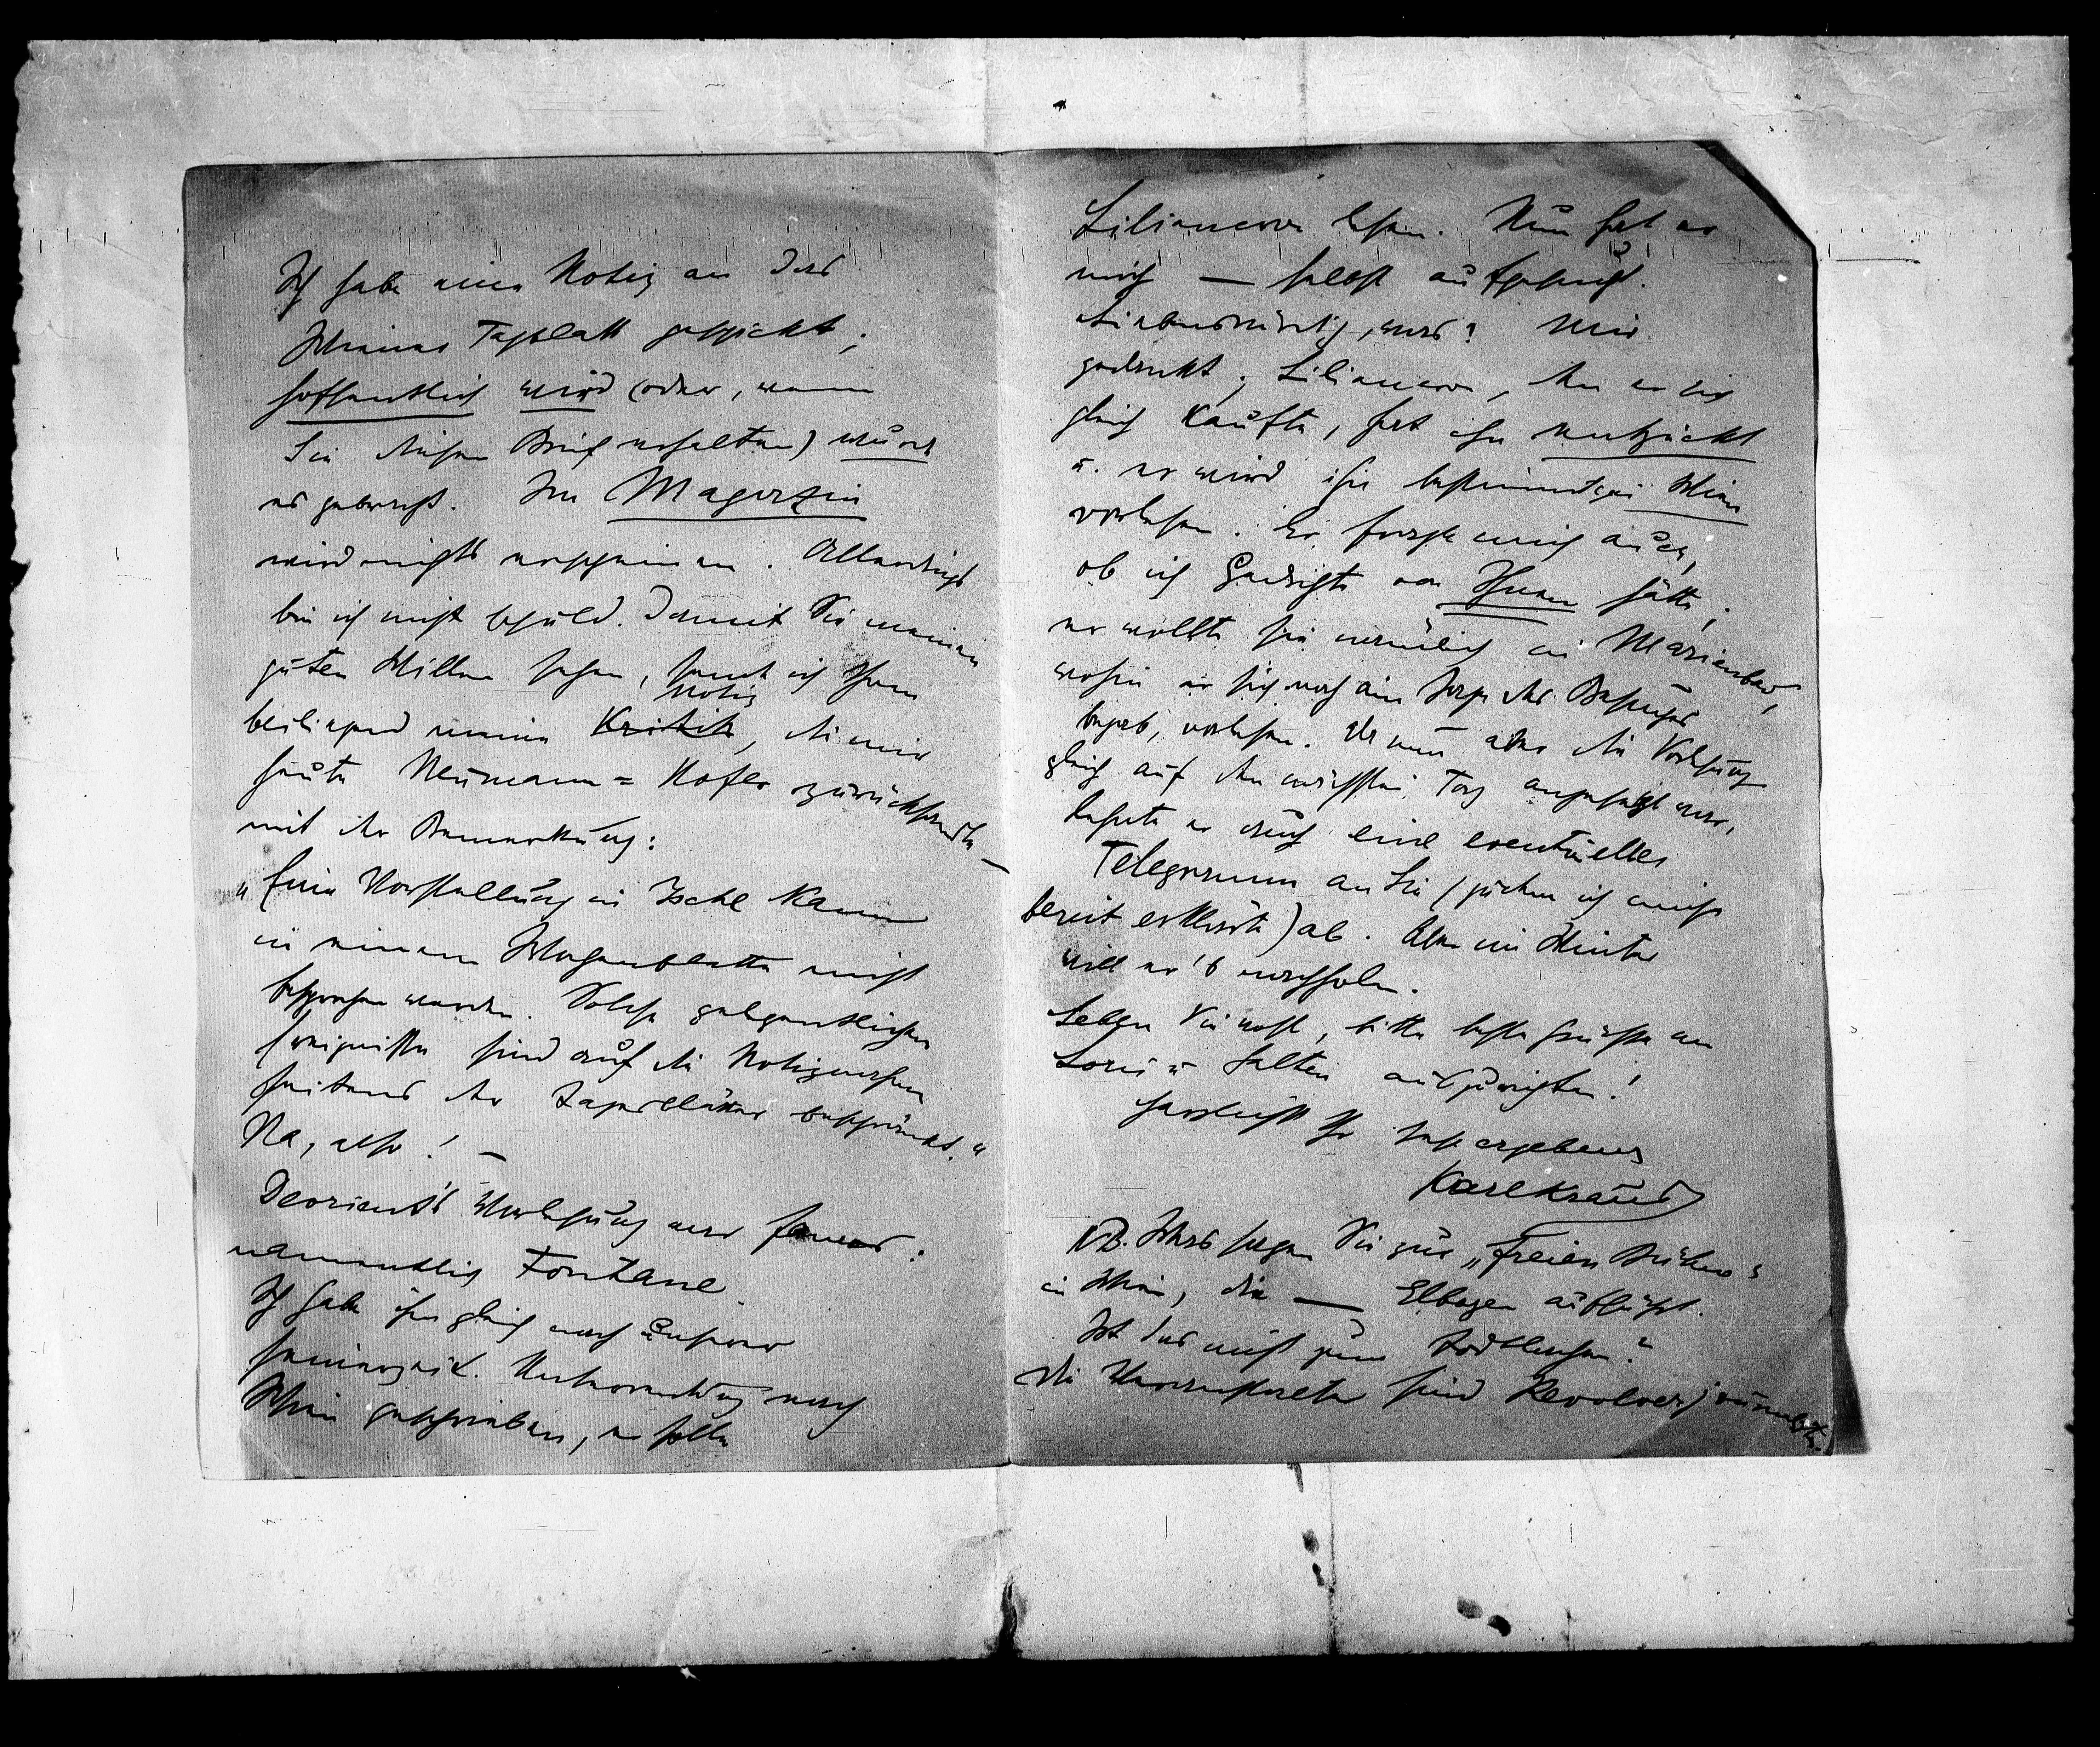 Ich habe eine Notiz an das
Wiener Tagblatt geschickt;
hoffentlich wird (oder, wenn
Sie diesen Brief erhalten) wurde
es gebracht. Im Magazin
wird nichts erscheinen. Allerdings
bin ich nicht schuld. Damit Sie meinen
guten Willen sehen, sende ich Ihnen
beiliegend meine Kritik Notiz, die mir
heute Neumann=Hofer zurücksandte –
mit der Bemerkung:
„Eine Vorstellung in Ischl kann
in einem Wochenblatte nicht
besprochen werden. Solche gelegentlichen
Ereignisse sind auf die Notizen
seitens der Tagesblätter beschränkt.“
Na, also! –
Devrient's Vorlesung war famos:
namentlich Fontane.
Ich habe ihm gleich nach unserer
Unterredung nach
Wien geschrieben, er solle
Liliencron lesen. Nun hat er
mich — selbst aufgesucht.
Liebenswürdig, was? Mir
gedankt; Liliencron, den er sich
gleich kaufte, hat ihn entzückt
u. er wird ihn bestimmt in Wien
vorlesen. Er fragte mich auch,
ob ich Gedichte von Ihnen hätte;
er wollte sie nämlich in Marienbad,
wohin er sich noch am Tage des Besuches
begab, vorlesen. Da nun aber die Vorlesung
gleich auf den nächsten Tag angesetzt war,
lehnte er auch eine eventuelles
Telegramm an Sie (zu dem ich mich
bereit erklärte) ab. Aber im Winter
will er's nachholen.
Leben Sie wohl, bitte beste Grüsse an
Loris u Salten auszurichten!
Herzlichst Ihr sehr ergebener
Karl Kraus
NB. Was sagen Sie zur „Freien Bühne“
in Wien, die — Elbogen aufführt.
Ist das nicht zum Todtlachen?
Die Veranstalter sind Revolverjournalisten.